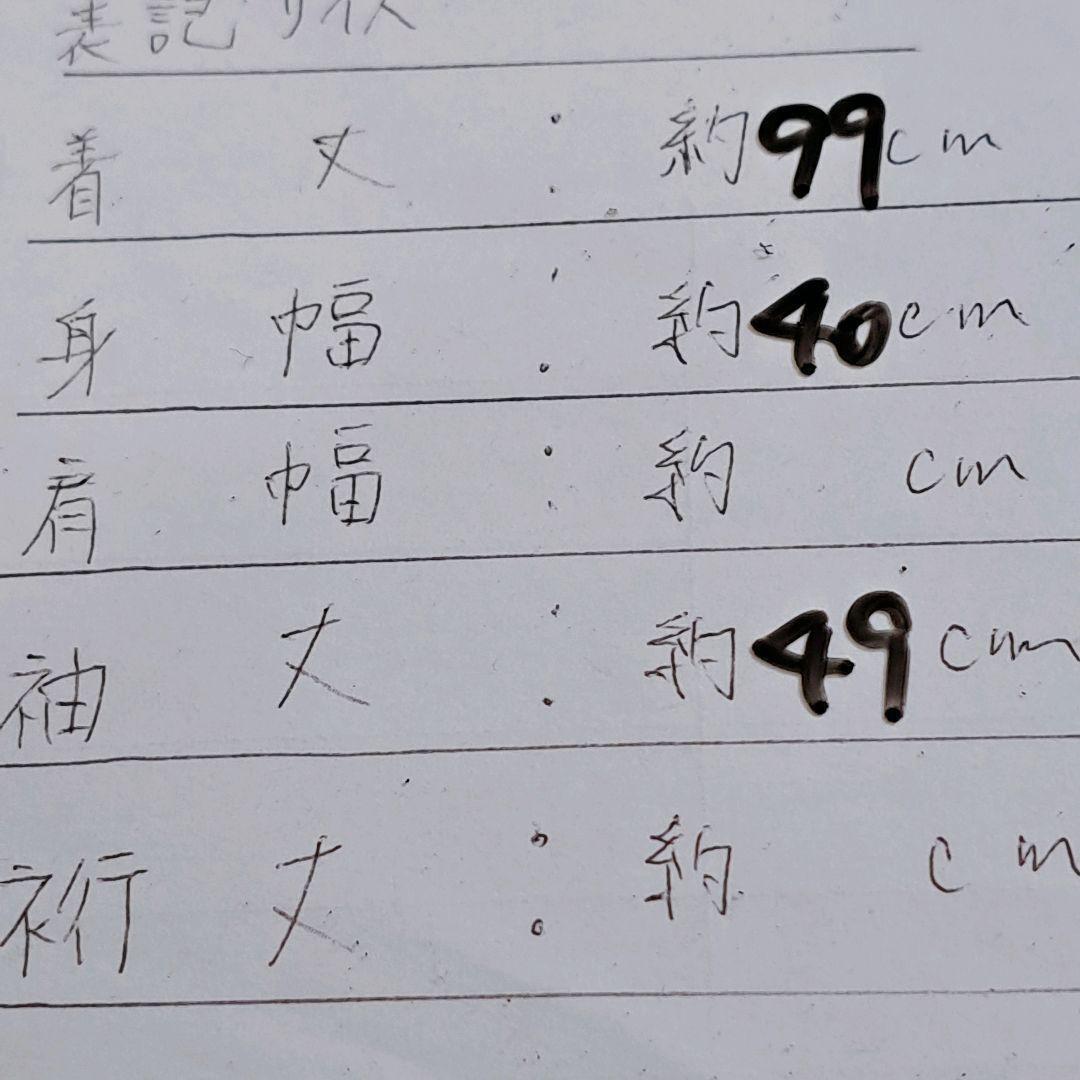 表記サイズ
着丈：約99cm
身幅：約40cm
肩幅：約 cm
袖丈：約49cm
裄丈：約 cm